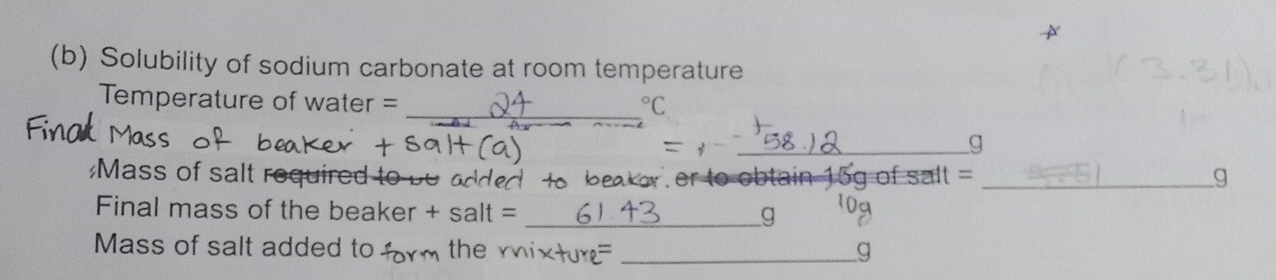 (b) Solubility of sodium carbonate at room temperature
Temperature of water = 24 °C
Final Mass of beaker + salt (a) = 58.12 g
Mass of salt required to added to beaker. er to obtain 15g of salt = g
Final mass of the beaker + salt = 61.43 g 10g
Mass of salt added to form the mixture= g